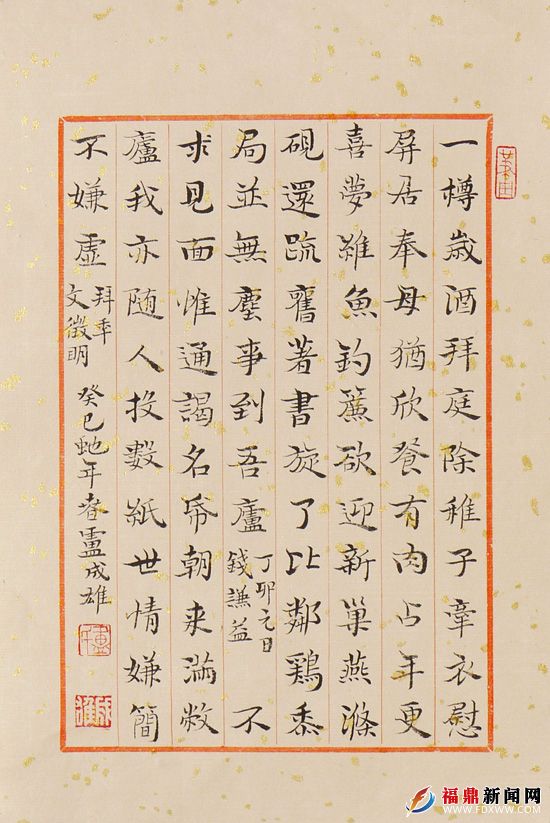 一樽歲酒拜庭除稚子牽衣慰
屏居奉母猶欣餐有肉占年更
喜夢維魚釣簾欲迎新巢燕滌
硯還疏舊著書旋了比鄰鶏黍
局並無塵事到吾廬
丁卯元日
錢謙益
不
求見面惟通謁名帋朝来滿敝
廬我亦随人投數紙世情嫌簡
不嫌虛
拜年
文徵明
癸巳蛇年春盧成雄
福鼎新闻网
WWW.FDXWW.COM